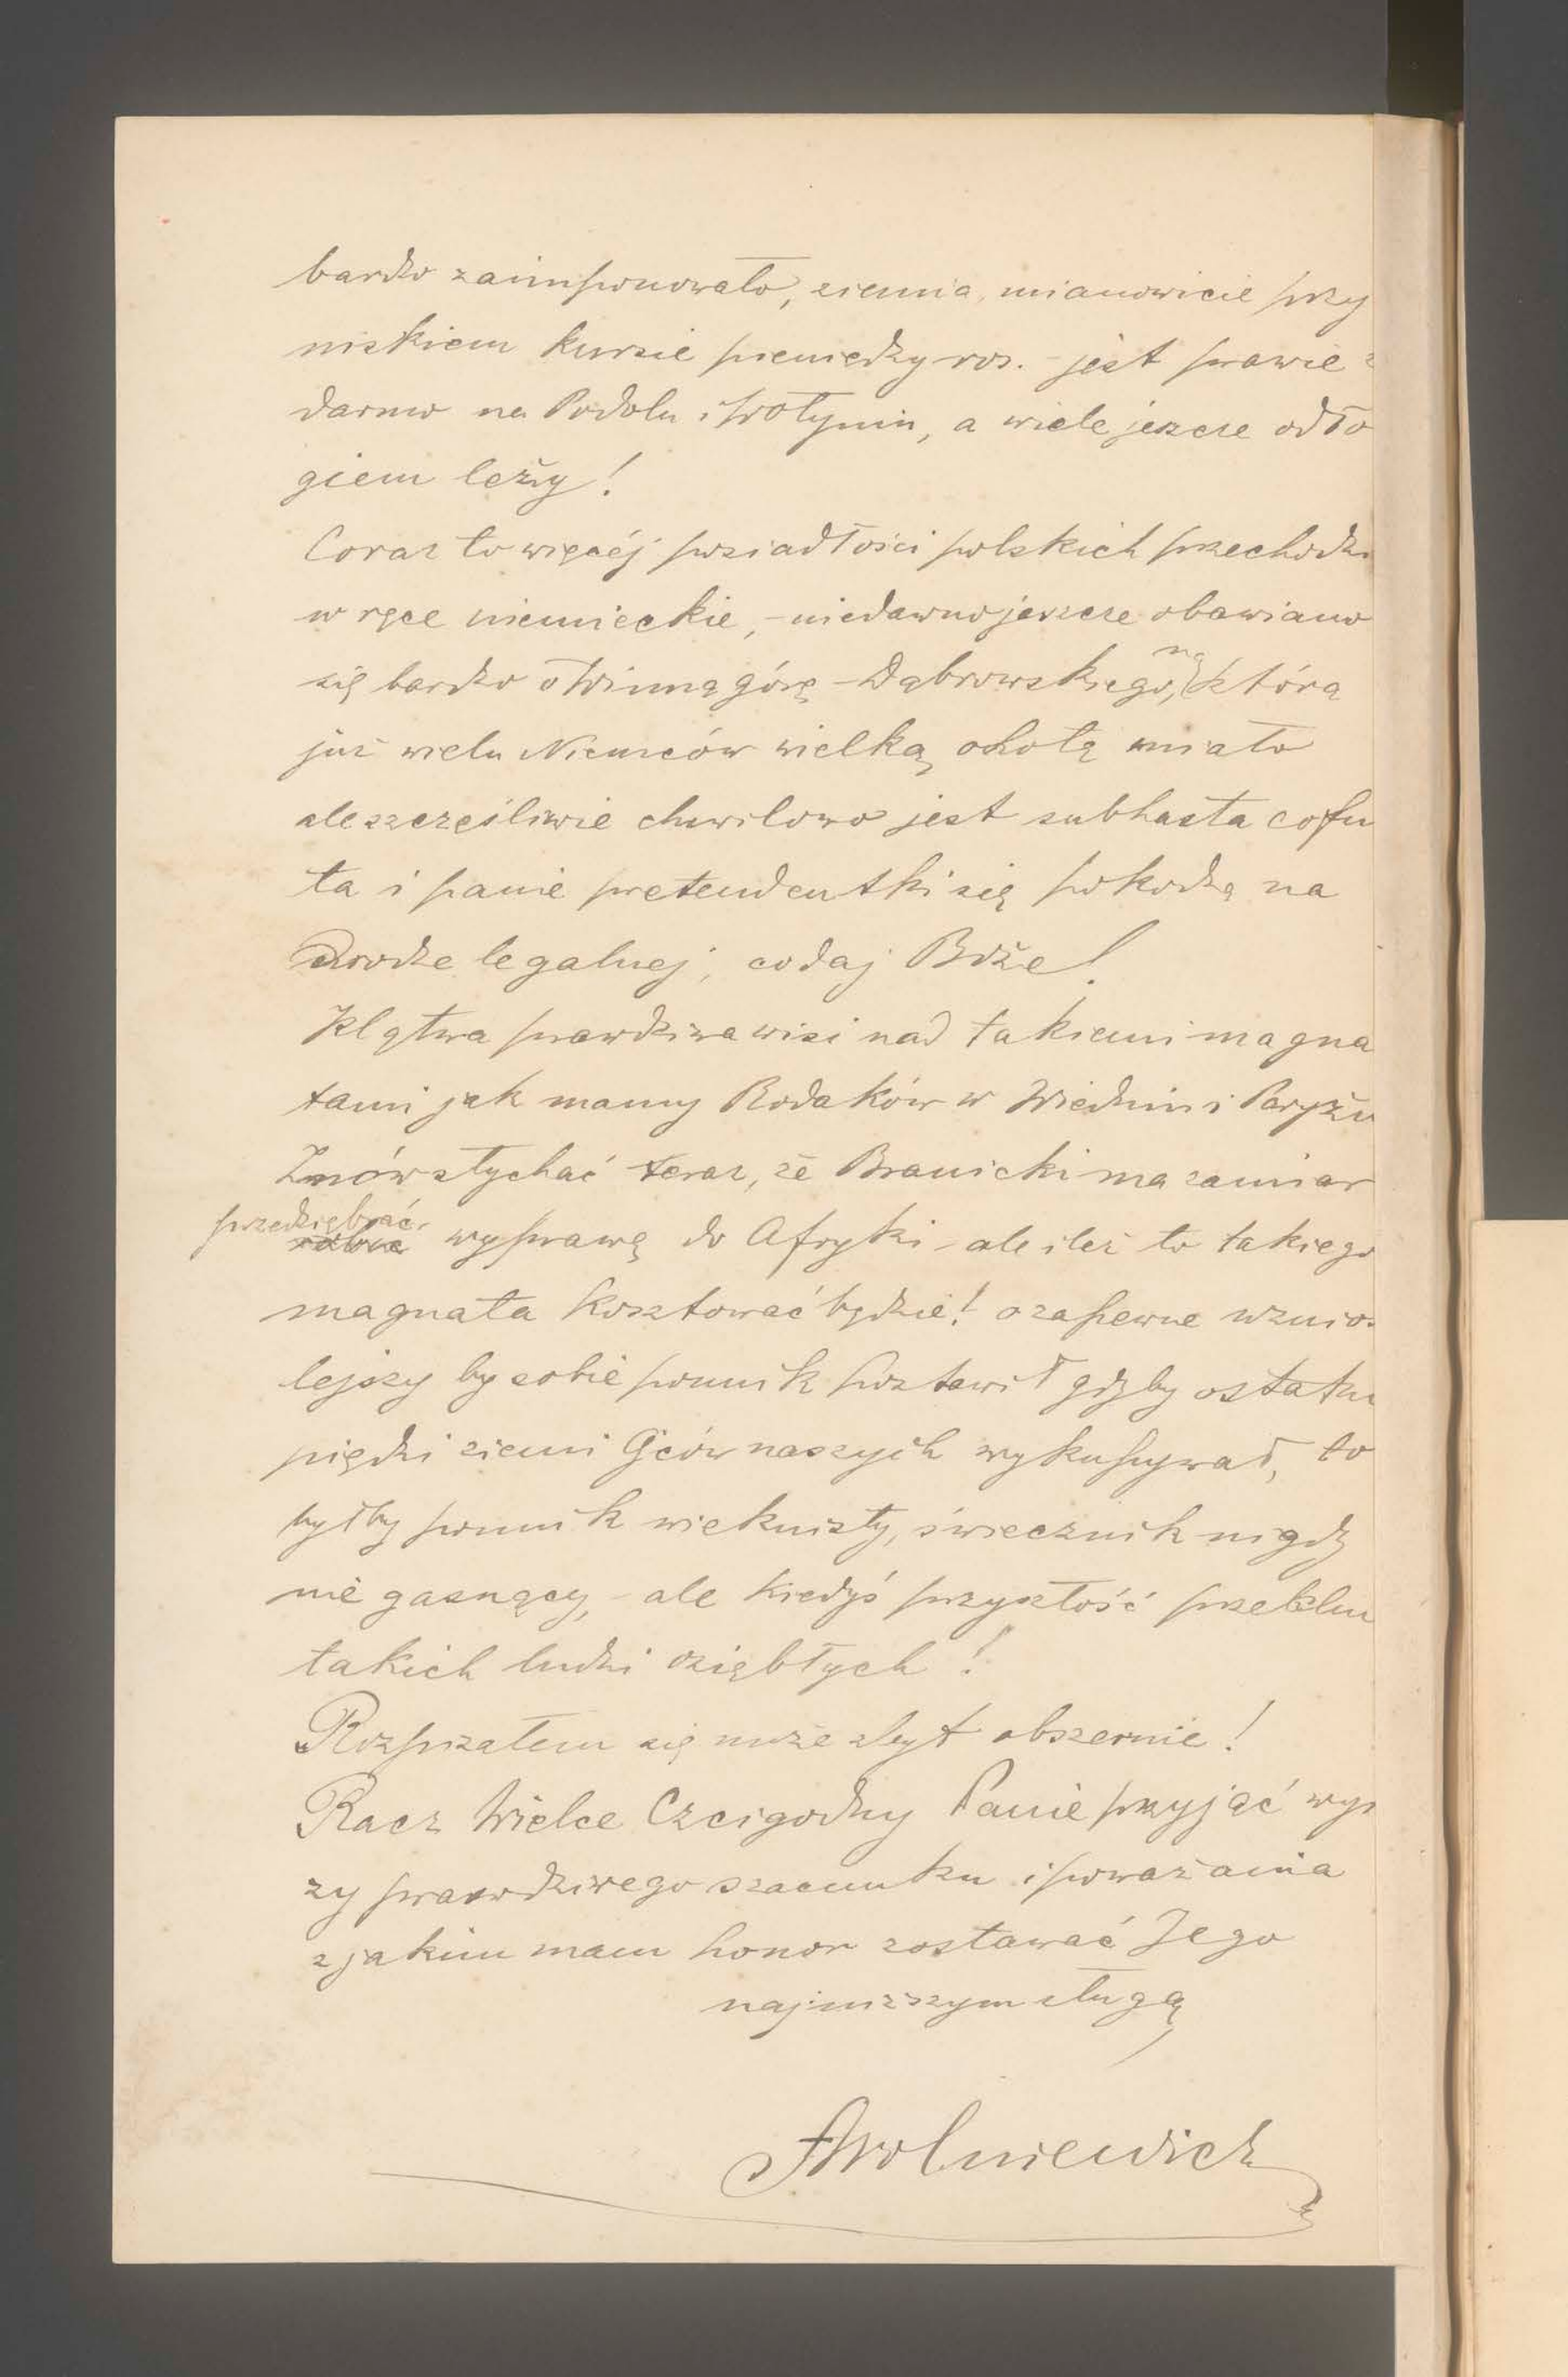 bardzo zaimponowało, ziemia, mianowicie przy
niskiem kursie pieniędzy ros. - jest prawie z
darmo na Podolu i Wołyniu, a wiele jeszcze odło
giem leży!
Coraz to więcéj posiadłości polskich przechodzi
w ręce niemieckie, - niedawno jeszcze obawiano
się bardzo o Winnągórę - Dąbrowskiego, na którą
już wielu Niemców wielką ohotę miało
ale szczęśliwie chwilowo jest subhasta cofnię
ta i panie pretendentki się pokodzą na
drodze legalnej, co daj Boże!
Klątwa prawdziwa wisi nad takiemi magna
tami jak mamy Rodaków w Wiedniu i Paryżu
Znów słychać teraz, że Branicki ma zamiar
przedsiębrać wyprawę do Afryki - ale ileż to takiego
magnata kosztować będzie! o zapewne wznio
lejszy by sobie pomnik postawił gdyby ostatni
piędzi ziemi Ojców naszych wykupywał, to
byłby pomnik wiekuisty, świecznik nigdy
nie gasnący, - ale kiedyś przyszłość przeklnie
takich ludzi oziębłych!
Rozpisałem się może zbyt obszernie!
Racz Wielce Czcigodny Panie przyjąć wyra
zy prawdziwego szacunku i poważania
z jakim mam honor zostawać Jego
najniższym sługą
FWolniewicz